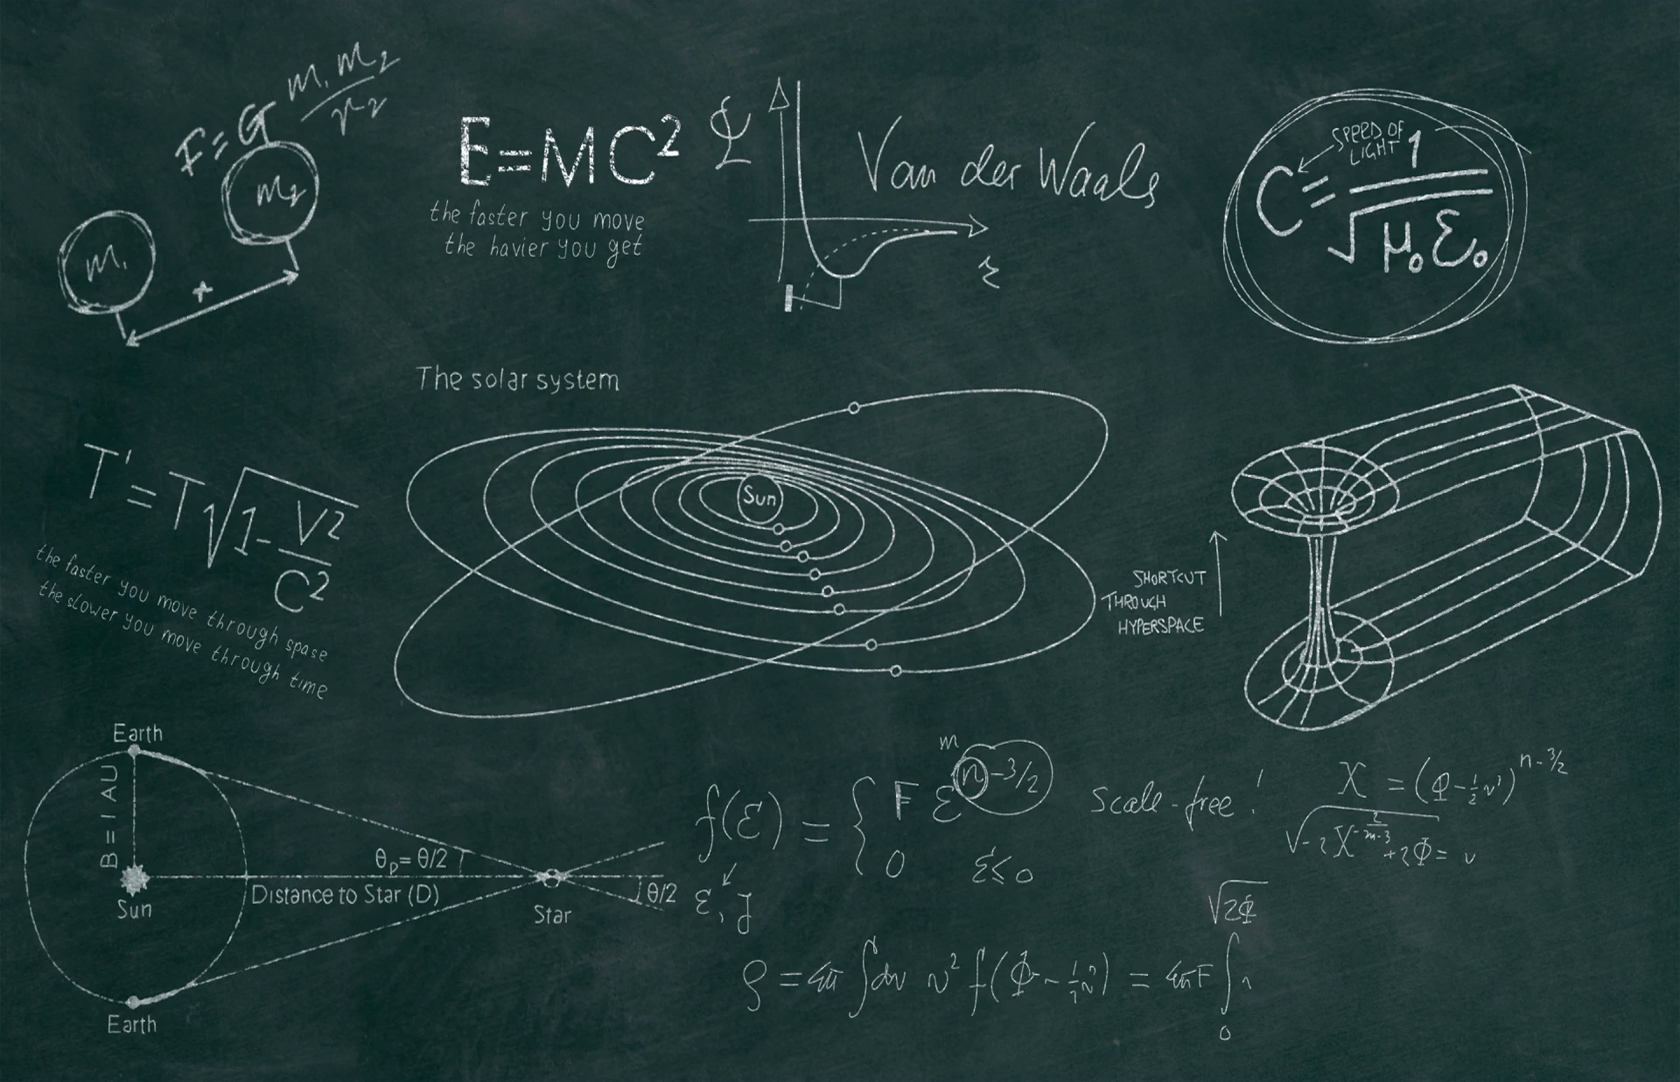 F=G m₁m₂/r²
m₂
m₁
r
E=MC²
the faster you move
the havier you get
Van der Waals
C= 1/√μ₀ε₀
SPEED OF
LIGHT
The solar system
Sun
T'=T√1-V²/C²
the faster you move through spase
the slower you move through time
SHORTCUT
THROUGH
HYPERSPACE
Earth
B=1 AU
θp=θ/2
Distance to Star (D)
θ/2
Sun
Star
Earth
m
f(ε) = { F ε^(n)-3/2
0 ε≤0
ε, J
Scale-free!
X = (Φ-½v²)^n-3/2
√2Φ
ρ = 4π ∫dv v² f(Φ-½v²) = 4πF ∫
0